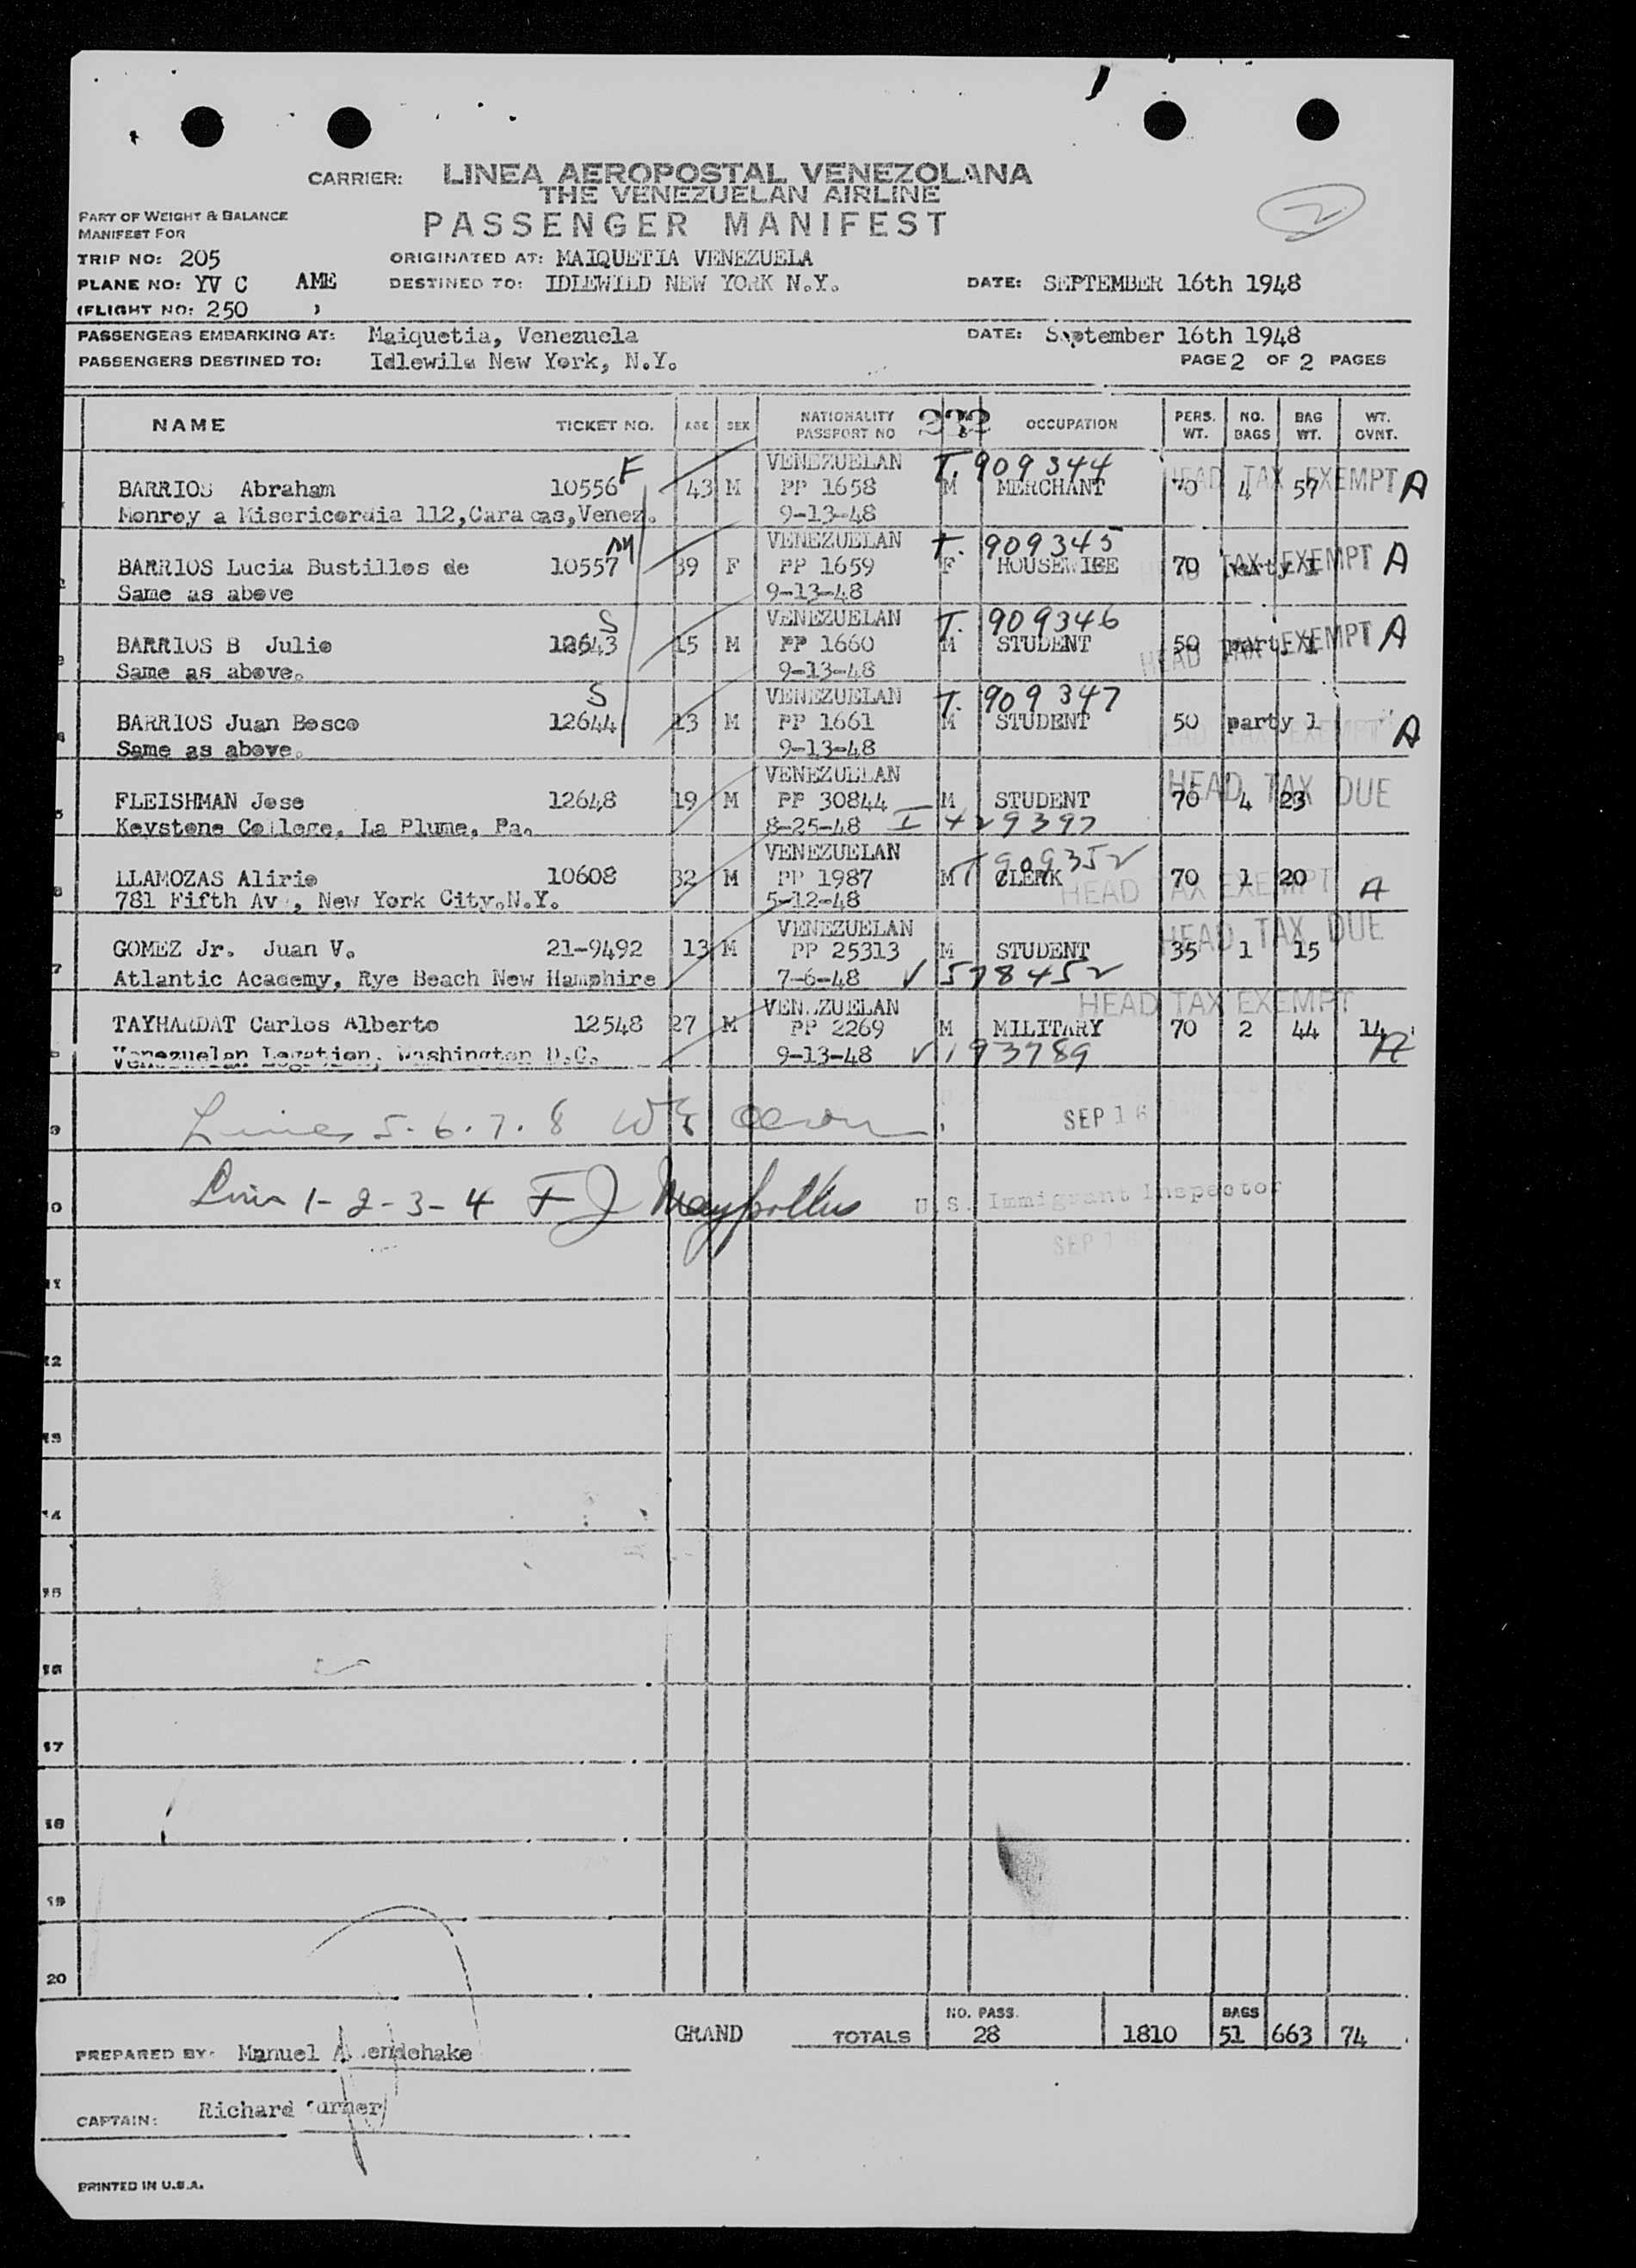 CARRIER: LINEA AEROPOSTAL VENEZOLANA
THE VENEZUELAN AIRLINE
PASSENGER MANIFEST
2
PART OF WEIGHT & BALANCE
MANIFEST FOR
TRIP NO: 205 ORIGINATED AT: MAIQUETIA VENEZUELA
PLANE NO: YV C AME DESTINED TO: IDLEWILD NEW YORK N.Y. DATE: SEPTEMBER 16th 1948
(FLIGHT NO: 250 )
PASSENGERS EMBARKING AT: Maiquetia, Venezuela DATE: September 16th 1948
PASSENGERS DESTINED TO: Idlewild New York, N.Y. PAGE 2 OF 2 PAGES
NAME TICKET NO. AGE SEX NATIONALITY PASSPORT NO OCCUPATION PERS. WT. NO. BAGS BAG WT. WT. OVNT.
VENEZUELAN T. 909344 HEAD TAX EXEMPT
BARRIOS Abraham 10556 F 43 M PP 1658 M MERCHANT 70 4 57 A
Monroy a Misericordia 112, Caracas, Venez. 9-13-48
VENEZUELAN T. 909345
BARRIOS Lucia Bustillos de 10557 M 39 F PP 1659 F HOUSEWIFE 70 party 1 HEAD TAX EXEMPT A
Same as above 9-13-48
VENEZUELAN T. 909346
BARRIOS B Julio 12643 S 15 M PP 1660 M STUDENT 50 party 1 HEAD TAX EXEMPT A
Same as above. 9-13-48
VENEZUELAN T. 909347
BARRIOS Juan Bosco 12644 S 13 M PP 1661 M STUDENT 50 party 1 HEAD TAX EXEMPT A
Same as above. 9-13-48
VENEZUELAN HEAD TAX DUE
FLEISHMAN Jose 12648 19 M PP 30844 M STUDENT 70 4 23
Keystone College, La Plume, Pa. 8-25-48 I 429397
VENEZUELAN T 909352
LLAMOZAS Alirio 10608 32 M PP 1987 M CLERK 70 1 20 HEAD TAX EXEMPT A
781 Fifth Av , New York City.N.Y. 5-12-48
VENEZUELAN HEAD TAX DUE
GOMEZ Jr. Juan V. 21-9492 13 M PP 25313 M STUDENT 35 1 15
Atlantic Academy, Rye Beach New Hamphire 7-6-48 V 578452
VENEZUELAN HEAD TAX EXEMPT
TAYHARDAT Carlos Alberto 12548 27 M PP 2269 M MILITARY 70 2 44 14
Venezuelan Legation, Washington D.C. 9-13-48 V 193789 A
Lines 5-6-7-8 SEP 16
Line 1-2-3-4 F J U.S. Immigrant Inspector
SEP 16
11
12
13
14
15
16
17
18
19
20
NO. PASS. BAGS
GRAND TOTALS 28 1810 51 663 74
PREPARED BY: Manuel
CAPTAIN: Richard
PRINTED IN U.S.A.